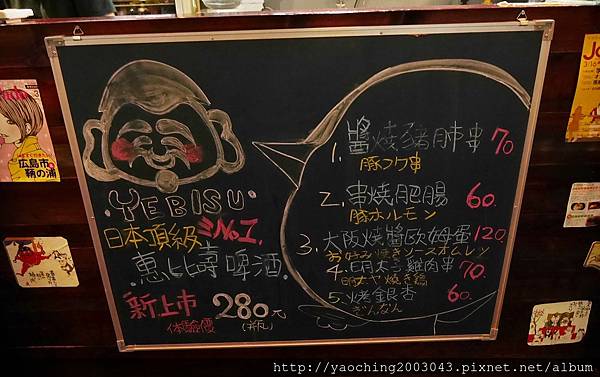 YEBISU
日本頂級 No.1.
惠比壽啤酒
新上市 280元
体驗價 (/瓶)
1. 醬燒豬肺串 70
豚フワ串
2. 串燒肥腸 60.
豚ホルモン
3. 大阪燒醬歐姆蛋 120.
お好み焼きソースオムレツ
4. 明太子雞肉串 70.
明太や焼き鶏
5. 烤銀杏 60.
ぎんなん
広島市
鞆の浦
http://yaoching2003043.pixnet.net/album